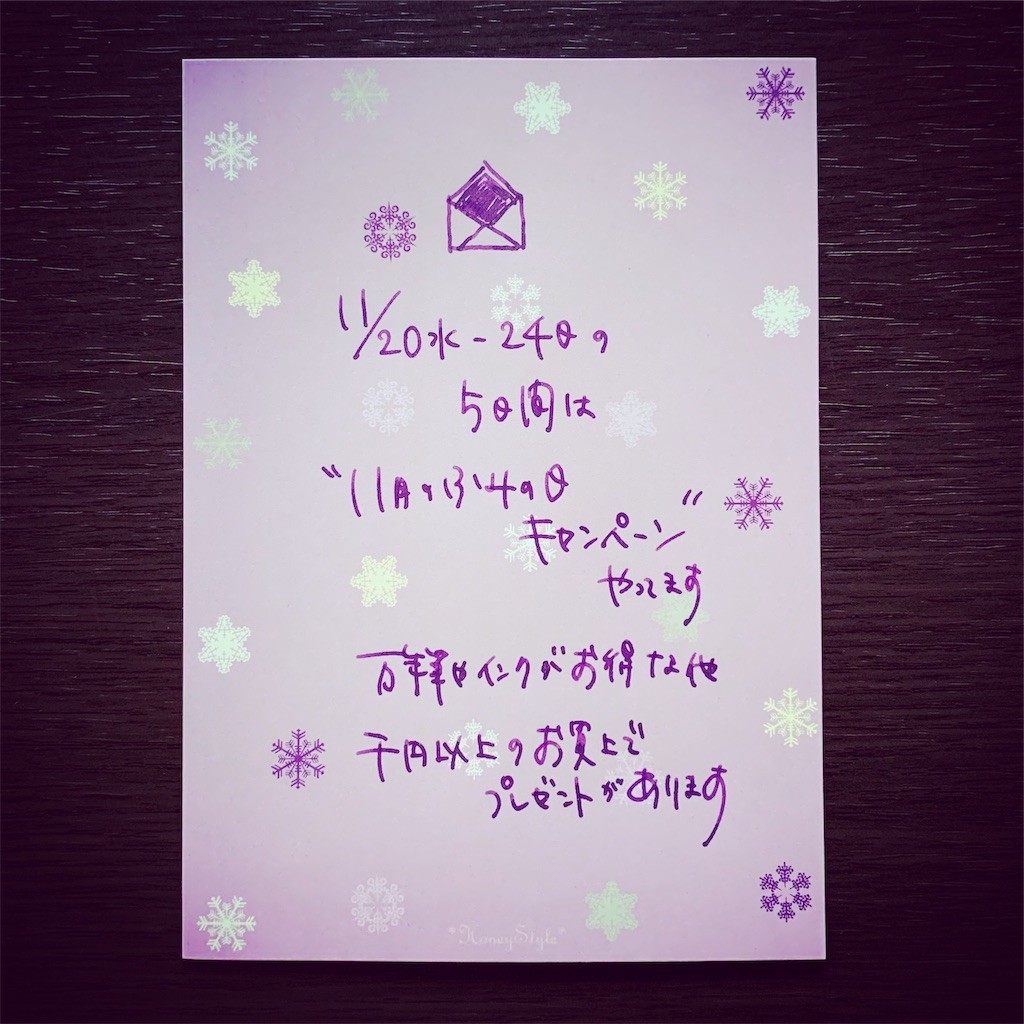 11/20水-24日の
5日間は
"11月のふみの日
キャンペーン"
やってます
万年筆やインクがお得な他
千円以上のお買上で
プレゼントがあります
"HoneyStyle"